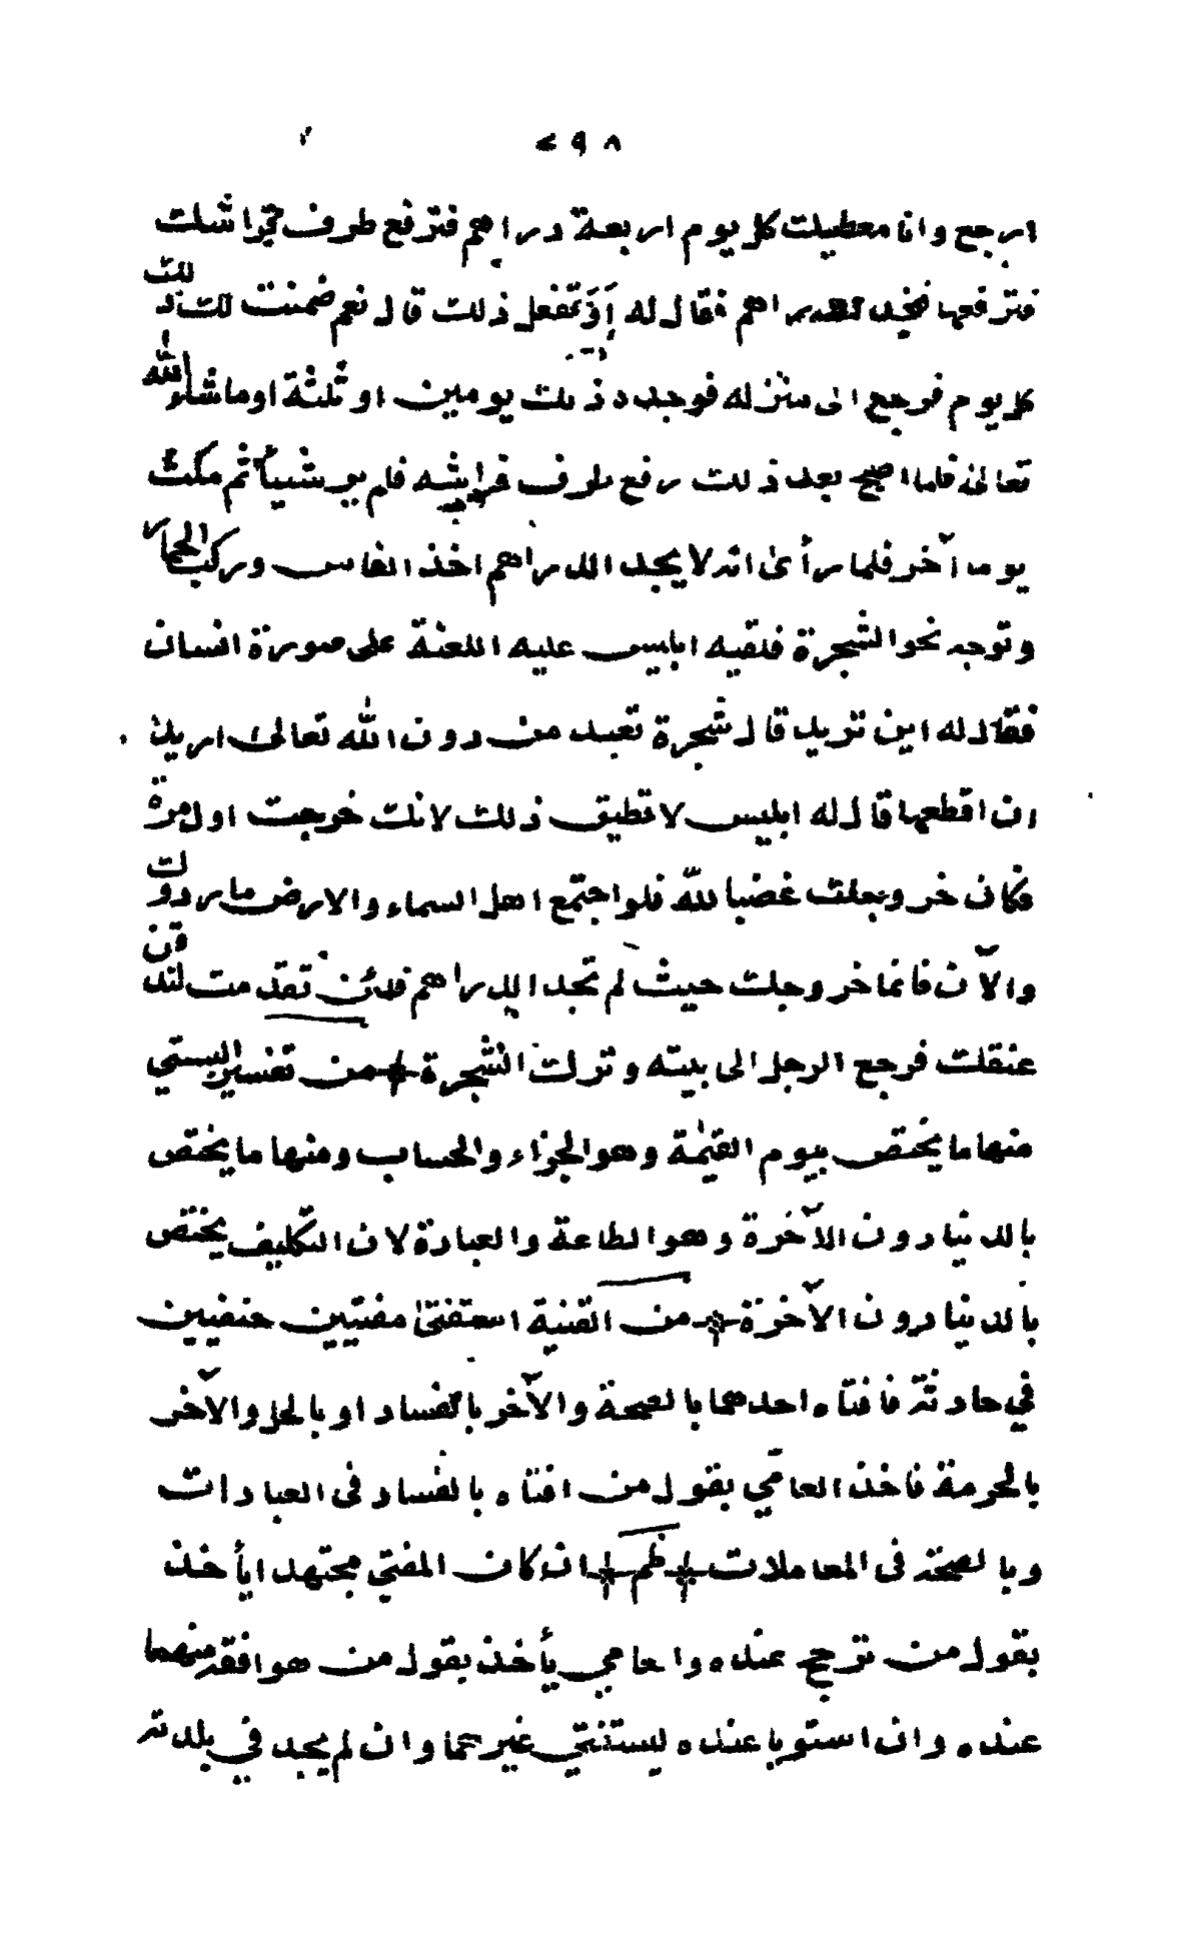 ٢٩٨
ارجع وانا معطيك كل يوم اربعة دراهم فترفع طرف فراشك
فترفعها فخذ دراهم فقال له أَوَتفعل ذلك قال نعم ضمنت لك ذلك
كل يوم فرجع الى منزله فوجد ذلك يومين او ثلثة او ما شاء الله
تعالى فلما اصبح بعد ذلك رفع طرف فراشه فلم ير شيئا ثم مكث
يوما آخر فلما رأى انه لا يجد الدراهم اخذ الفاس وركب الحمار
وتوجه نحو الشجرة فلقيه ابليس عليه اللعنة على صورة انسان
فقال له اين تريد قال شجرة تعبد من دون الله تعالى اريد
ان اقطعها قال له ابليس لا تطيق ذلك لانك خرجت اول مرة
فكان خروجك غضبا لله فلو اجتمع اهل السماء والارض ما ردوك
والآن فانما خروجك حيث لم تجد الدراهم فلئن تقدمت لندقن
عنقك فرجع الرجل الى بيته وترك الشجرة من تفسير البستي
منها ما يختص بيوم القيمة وهو الجزاء والحساب ومنها ما يختص
بالدنيا دون الآخرة وهو الطاعة والعبادة لان التكليف يختص
بالدنيا دون الآخرة من القنية استفتى مفتيين حنفيين
في حادثة فافتاه احدهما بالصحة والآخر بالفساد او بالحل والآخر
بالحرمة فاخذ العامي بقول من افتاه بالفساد فى العبادات
وبالصحة فى المعاملات ظم ان كان المفتي مجتهدا يأخذ
بقول من ترجح عنده والعامي يأخذ بقول من هو افقه منهما
عنده وان استويا عنده يستفتي غيرهما وان لم يجد في بلدته